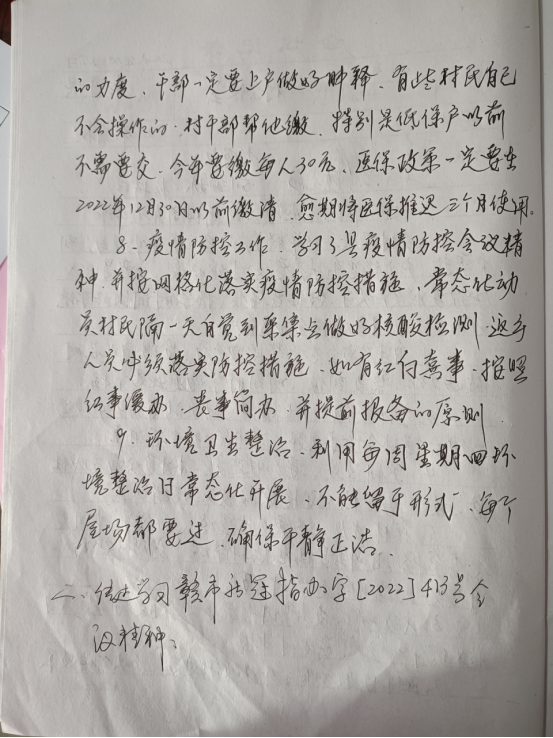 的力度、干部一定要上户做好解释、有些村民自己
不会操作的、村干部帮他缴、特别是低保户以前
不需要交、今年要缴每人30元、医保政策一定要在
2022年12月30日以前缴清、愈期将医保推迟三个月使用。
8、疫情防控工作、学习了县疫情防控会议精
神、并按网格化落实疫情防控措施、常态化动
员村民隔一天自觉到采集点做好核酸检测、返乡
人员必须落实防控措施、如有红白喜事、按照
红事缓办、丧事简办、并提前报备的原则
9、环境卫生整治、利用每周星期四环
境整治日常态化开展、不能留于形式、每个
屋场都要过、确保干静正洁、
二、传达学习赣市新冠指办字[2022]413号会
议精神、